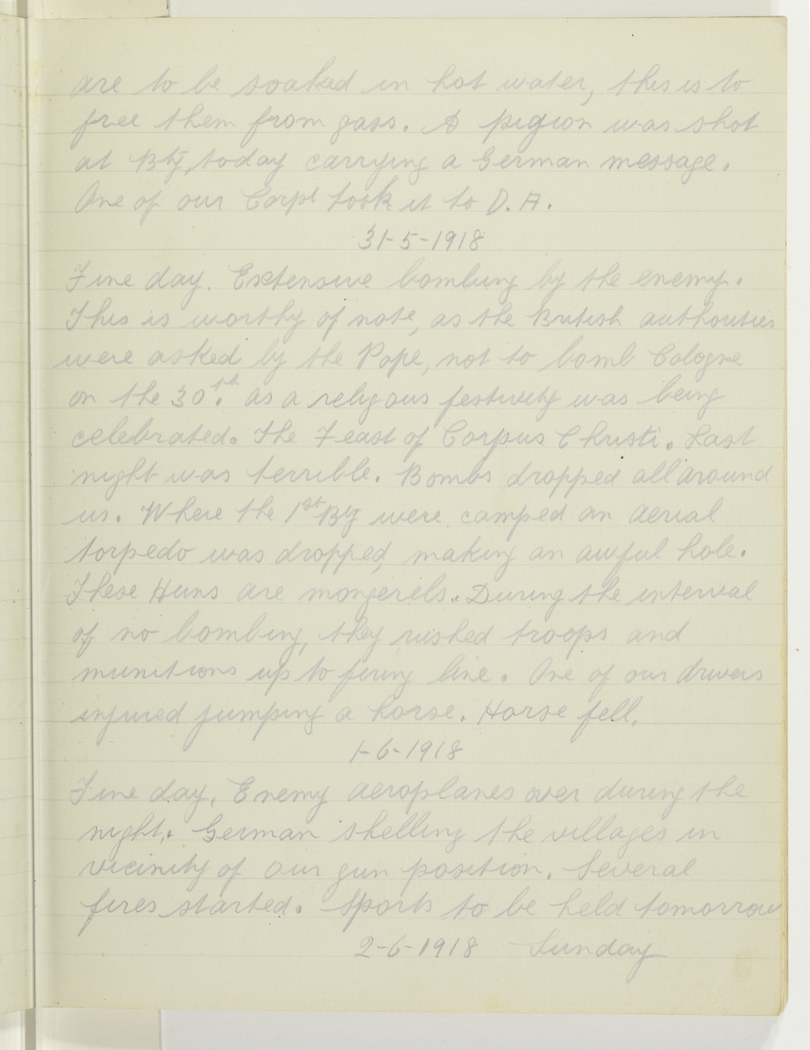 are to be soaked in hot water, this is to
free them from gass. A pigion was shot
at Bty, today carrying a German message.
One of our Corpl took it to D.A.
31-5-1918
Fine day. Extensive bombing by the enemy.
This is worthy of note, as the British authorities
were asked by the Pope, not to bomb Cologne
on the 30th. as a religous festivity was being
celebrated. The Feast of Corpus Christi. Last
night was terrible. Bombs dropped all around
us. Where the 1st Bty were camped an aerial
torpedo was dropped, making an awful hole.
These Huns are mongerels. During the interval
of no bombing, they rushed troops and
munitions up to firing line. One of our drivers
injured jumping a horse. Horse fell.
1-6-1918
Fine day. Enemy aeroplanes over during the
night. German shelling the villages in
vicinity of our gun position. Several
fires started. Sports to be held tomorrow
2-6-1918 Sunday